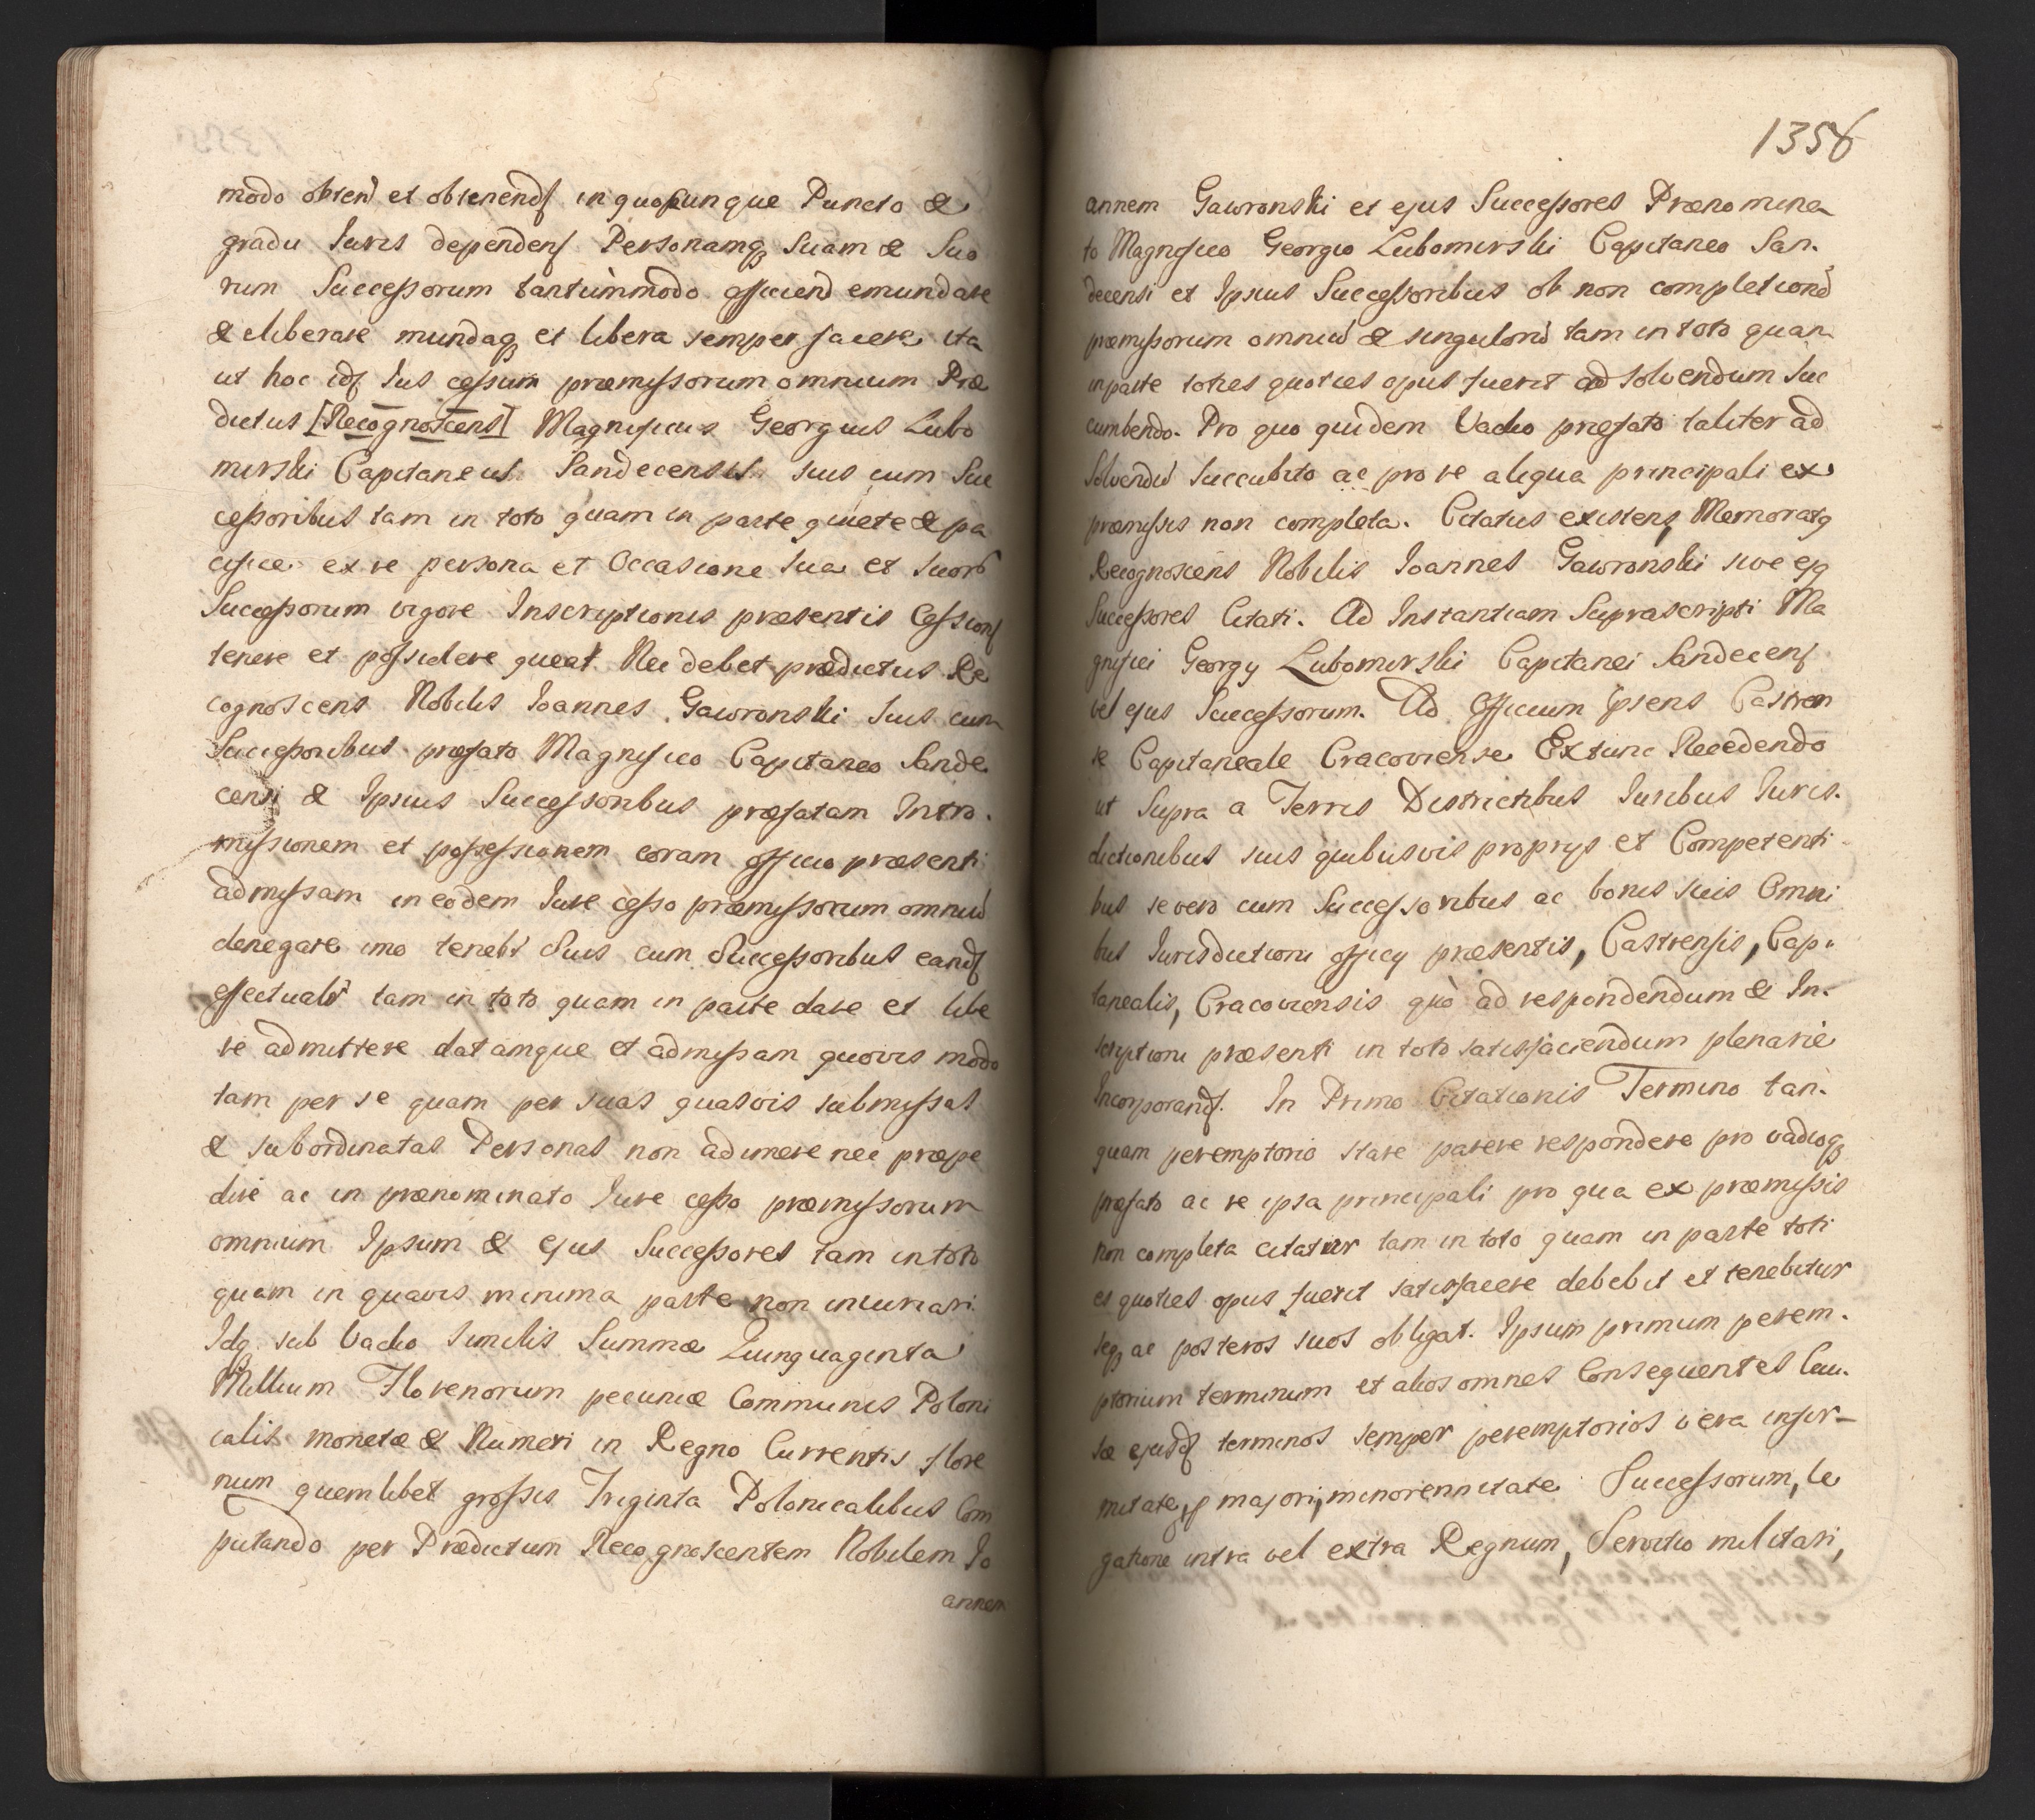 modo obten̄ et obtenend in quocunque Puncto &
gradu Iuris dependen Personamq suam & Suo
rum Successorum tantummodo efficiend emundare
& eliberare mundaq et libera semper facere ita
ut hoc id Ius cessum præmissorum omnium Præ
dictus [Recognoscens] Magnificus Georgius Lubo
mirski Capitaneus Sandecensis suis cum Suc
cessoribus tam in toto quam in parte quiete & pa
cifice ex re persona et Occasione sua et suor
Successorum vigore Inscriptionis præsentis Cession
tenere et possidere queat. Nec debet prædictus Re
cognoscens Nobilis Ioannes Gawronski suis cum
Successoribus præfato Magnifico Capitaneo Sande
censi & Ipsius Successoribus præfatam Intro.
missionem et possessionem coram officio præsenti
admissam in eodem Iure cesso præmissorum omniu
denegare imo tenebr Suis cum Successoribus eand
effectualr tam in toto quam in parte dare et libe
re admittere datamque et admissam quovis modo
tam per se quam per suas quasvis submissas
& subordinatas Personas non adimere nec præpe
dire ac in prænominato Iure cesso præmissorum
omnium Ipsum & ejus Successores tam in toto
quam in quavis minima parte non iniuriari.
Idq sub Vadio similis Summæ Quinquaginta
Millium Florenorum pecuniæ Communis Poloni
calis monetæ & Numeri in Regno Currentis flore
num quemlibet grossis Triginta Polonicalibus Com
putando per Prædictum Recognoscentem Nobilem Io
annem
1356
annem Gawronski et ejus Successores Prænomina
to Magnifico Georgio Lubomirski Capitaneo San.
decensi et Ipsius Successoribus ob non completione
præmissorum omniu & singuloru tam in toto quam
in parte toties quoties opus fuerit ad solvendum suc
cumbendo. Pro quo quidem Vadio præfato taliter ad
Solvendu succubito ac pro re aliqua principali ex
præmissis non completa. Citatus existens Memoratq
Recognoscens Nobilis Ioannes Gawronski sive ejq
Successores Citati. Ad Instantiam Suprascripti Ma
gnifici Georgy Lubomirski Capitanei Sandecen
vel ejus Successorum. Ad Officium psens Castren
se Capitaneale Cracoviense Extunc Recedendo
ut Supra a Terris Districtibus Iuribus Iuris.
dictionibus suis quibusvis proprys et Competenti
bus se vero cum Successoribus ac bonis suis Omni
bus Iurisdictioni officy præsentis, Castrensis, Capi
tanealis, Cracoviensis quò ad respondendum & In.
scriptioni præsenti in toto satisfaciendum plenarie
Incorporand. In Primo Citationis Termino tan.
quam peremptorio stare parere respondere pro vadioq
præfato ac re ipsa principali pro qua ex præmissis
non completa citatur tam in toto quam in parte toti
es quoties opus fuerit satisfacere debebit et tenebitur
seq ac posteros suos obligat. Ipsum primum perem.
ptorium terminum et alios omnes Consequentes Cau.
sæ ejusd terminos semper peremptorios vera infir-
mitate, majori, minorennitate Successorum, le
gatione intra vel extra Regnum, Servitio militari,